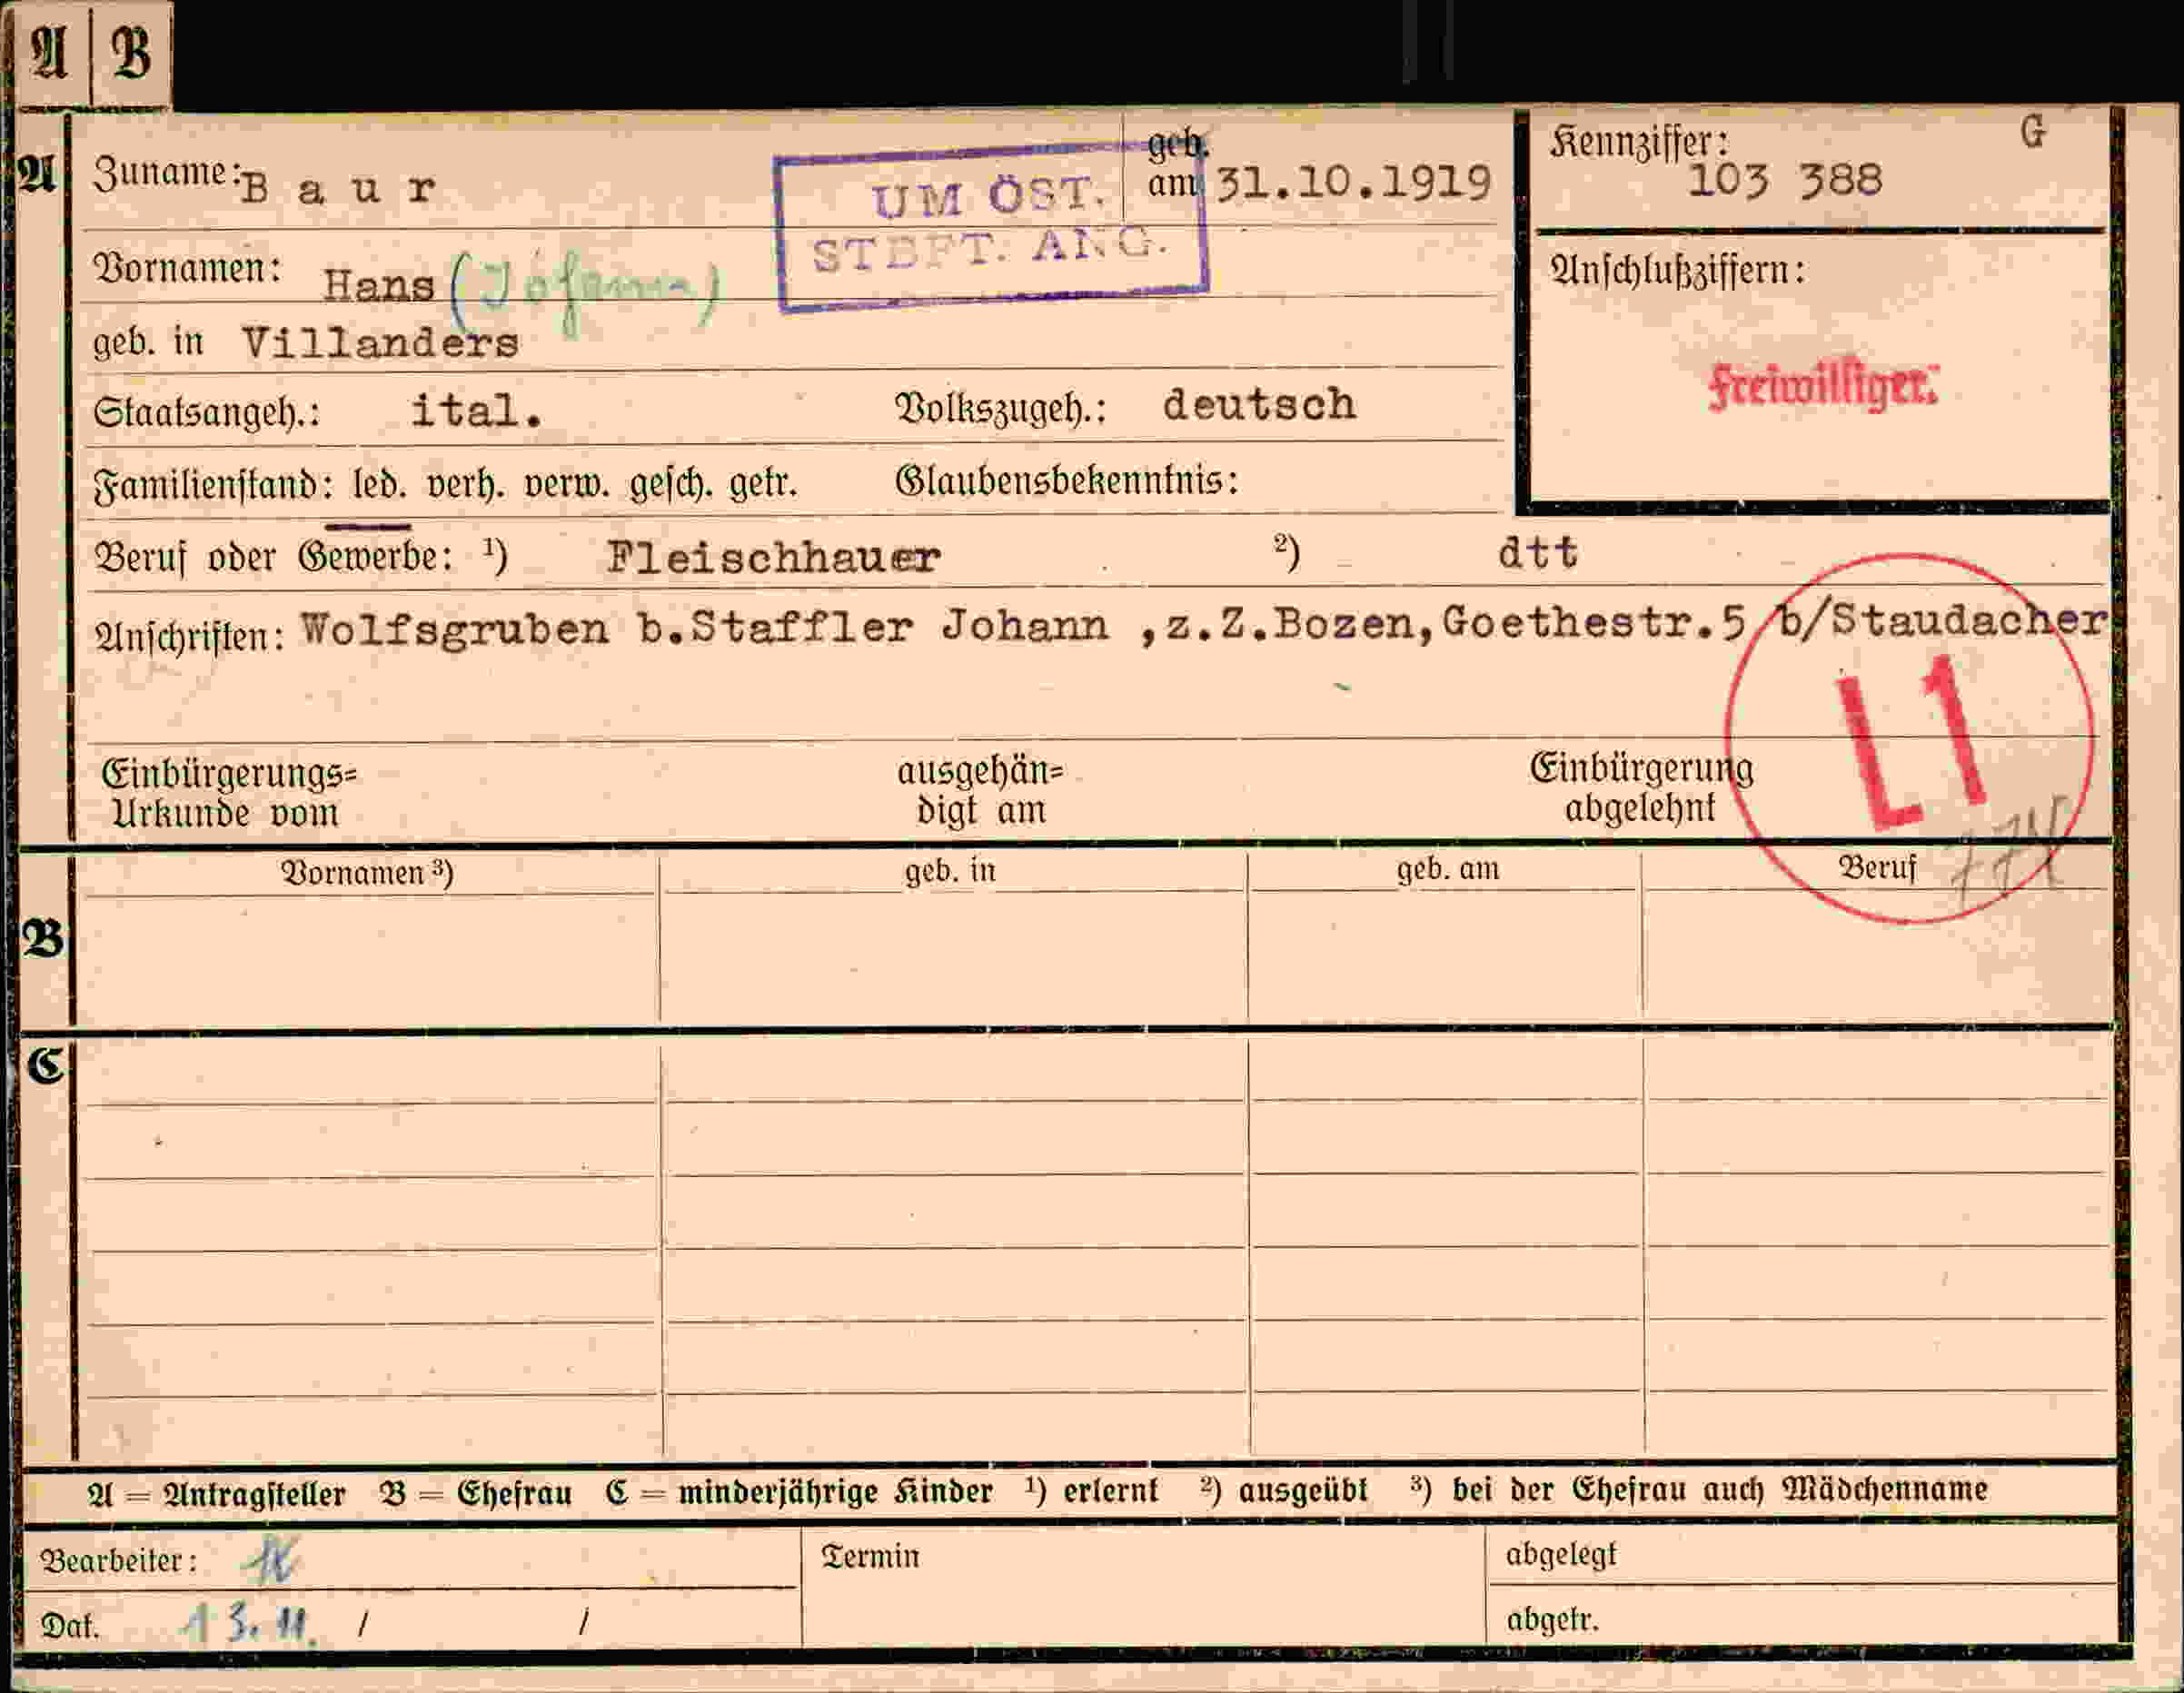 A B
A
Zuname: B a u r
geb. am 31.10.1919
Kennziffer: G
103 388
UM ÖST.
STBFT. ANG.
Vornamen: Hans (Johann)
Anschlußziffern:
geb. in Villanders
Freiwilliger.
Staatsangeh.: ital. Volkszugeh.: deutsch
Familienstand: led. verh. verw. gesch. getr. Glaubensbekenntnis:
Beruf oder Gewerbe: ¹) Fleischhauer ²) dtt
Anschriften: Wolfsgruben b.Staffler Johann ,z.Z.Bozen,Goethestr.5 b/Staudacher
L1
Einbürgerungs= ausgehän= Einbürgerung
Urkunde vom digt am abgelehnt
Vornamen ³) geb. in geb. am Beruf
B
C
A = Antragsteller B = Ehefrau C = minderjährige Kinder ¹) erlernt ²) ausgeübt ³) bei der Ehefrau auch Mädchenname
Bearbeiter: Termin abgelegt
Dat. 13.11. / / abgetr.